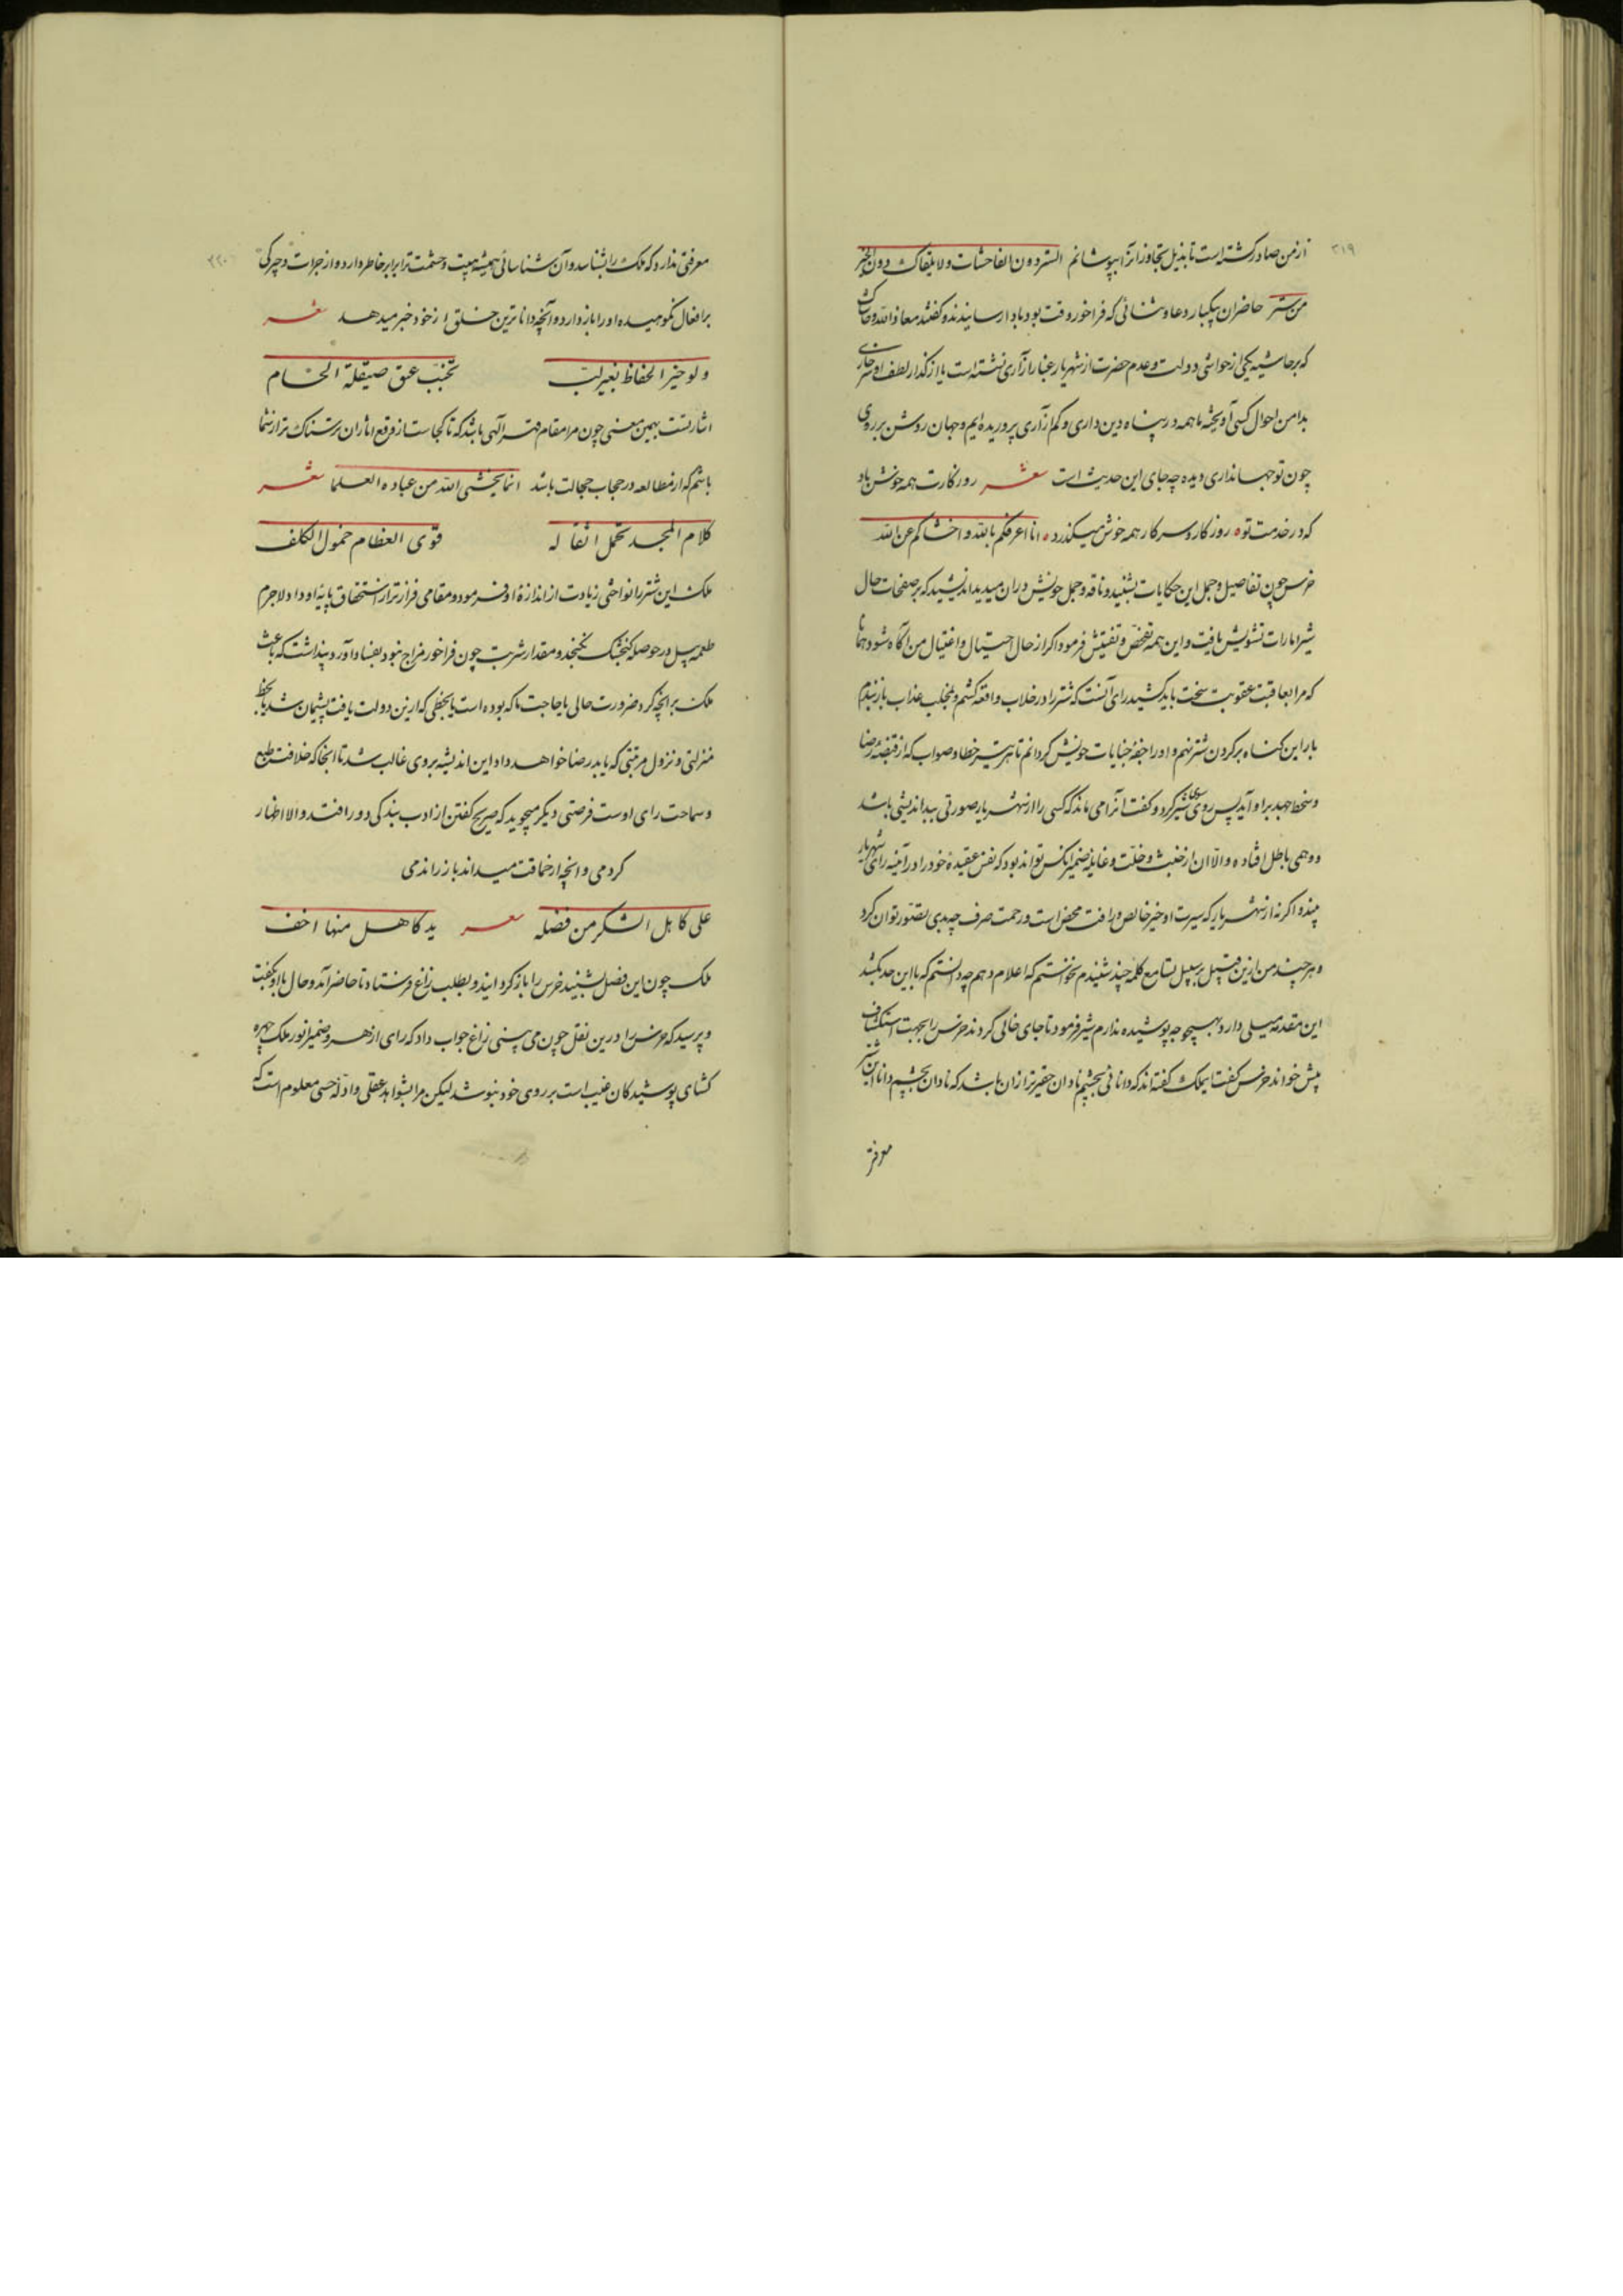 ۲۱۹
از من صادر کشته است تا بذیل تجاوز انرا بپوشانم الستر دون الفاحشات ولا یلقاک دون الخیر
من ستر حاضران بیکبار دعا و ثنائی که فراخور وقت بود باد ارسانیدند و کفتند معاذ الله و حاشاک
که بر حاشیه یکی از حواشی دولت و خدم حضرت از شهریار غبار ازاری نشسته است یا از کذار لطف او سر خاری
بدامن احوال کسی آویخته ما همه در پناه دین داری و کم ازاری پروریده ایم و جهان روشن بر روی
چون تو جهانداری دیده چه جای این حدیث است شعر روزکارت همه خوش باد
که در خدمت تو روزکار و سر و کار همه خوش میکذرد انا اعرفکم بالله و اخشاکم عن الله
خرس چون تفاصیل و جمل این حکایات بشنید و ناقه و جمل خویش دران میدید اندیشید که بر صفحات حال
شیر امارات تشویش یافت و این همه تفحص و تفتیش فرمود اکر از حال احتیال و اغتیال من اکاه شود همانا
که مرا بعاقبت عقوبت سخت باید کشید رای آنست که شتر را در خلاب واقعه کشم و بمخلب عذاب باز بندم
بار این کناه بر کردن شتر نهم و او را جفهٔ جنایات خویش کردانم تا هر تیر خطا و صواب که از قبضهٔ رضا
و سخط جهد بر او آید پس روی بسوی شیر کرد و کفت انرا می ماند که کسی را از شهریار صورتی بد اندیشی باشد
و وهمی باطل افتاده والا ان از خبث و خلت و غایلهٔ ضمیر انکس تواند بود که نقش عقیدهٔ خود را در آینه رای شهریار
میند و اکر نه از شهریار که سیرت او خیر خالص و رافت محض است و رحمت صرف چه بدی تصور توان کرد
و هر چند من ازین قبیل بر سبیل تسامع کلمه چند شنیدم نخواستم که اعلام دهم چه دانستم که با این حد بکشد
این مقدمه میلی دارد بهیچوجه پوشیده ندارم شیر فرمود تا جای خالی کردند خرس را بجهت استکشاف
پیش خواند خرس کفت ایملک کفته اند که دانائی بچشم نادان حقیرتر ازان باشد که نادان بچشم دانا این شتر
معرفتی
۲۲۰
معرفتی ندارد که ملک را بشناسد و آن شناسائی همیشه هیبت و حشمت ترا برابر خاطر دارد و از جرات و چیرکی
بر افعال نکوهیده او را باز دارد و آنچه داناترین خلق از خود خبر میدهد شعر
ولو خیر الحفاظ بغیر لب تجنب عنق صیقله الحسام
اشارتست بهمین معنی چون مرا مقام قهر الهی باشد که تا کجاست از موقع اثار ان ترسناک تر از شما
باشم که از مطالعه در حجاب جهالت باشد انما یخشی الله من عباده العلما شعر
کلام المجد تحمل اثقاله قوی العظام حمول الکلف
ملک این شتر را نواختی زیادت از اندازهٔ او فرمود و مقامی فرازتر از استحقاق پایهٔ او داد لاجرم
طعمه پیل در حوصله کنجشک نکنجد و مقدار شربت چون فراخور مزاج نبود بفساد آورد پنداشت که باعث
ملک بر انچه کرد ضرورت حالی یا حاجت ما که بوده است یا بحظی که ازین دولت یافت پشیمان شد یا بحط
منزلتی و نزول مرتبتی که باید رضا خواهد داد این اندیشه بروی غالب شد تا انجا که خلافت طبع
و سماحت رای اوست فرصتی دیکر میجوید که صریح کفتن از ادب بندکی دور افتد والا اظهار
کردمی و انچه از حماقت میداند باز راندمی
علی کاهل الشکر من فضله شعر ید کاهل منها اخف
ملک چون این فصل بشنید خرس را باز کردانید و بطلب زاغ فرستاد تا حاضر آمد و حال با او بکفت
و پرسید که خرس را درین نقل چون می بینی زاغ جواب داد که رای ازهر و ضمیر انور ملک چهره
کشای پوشیدکان غیب است بر روی خود نپوشد لیکن مرا بشواهد عقلی و ادلهٔ حسی معلوم است که